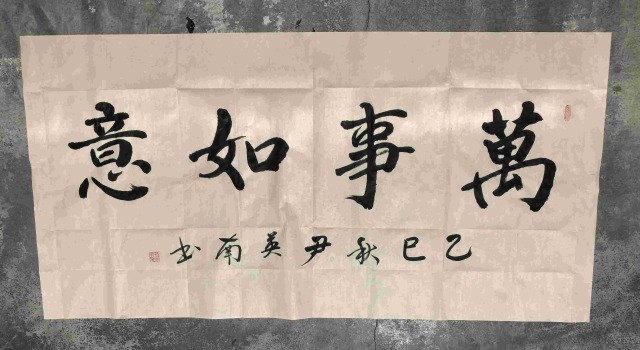 萬事如意
乙巳秋尹英南书